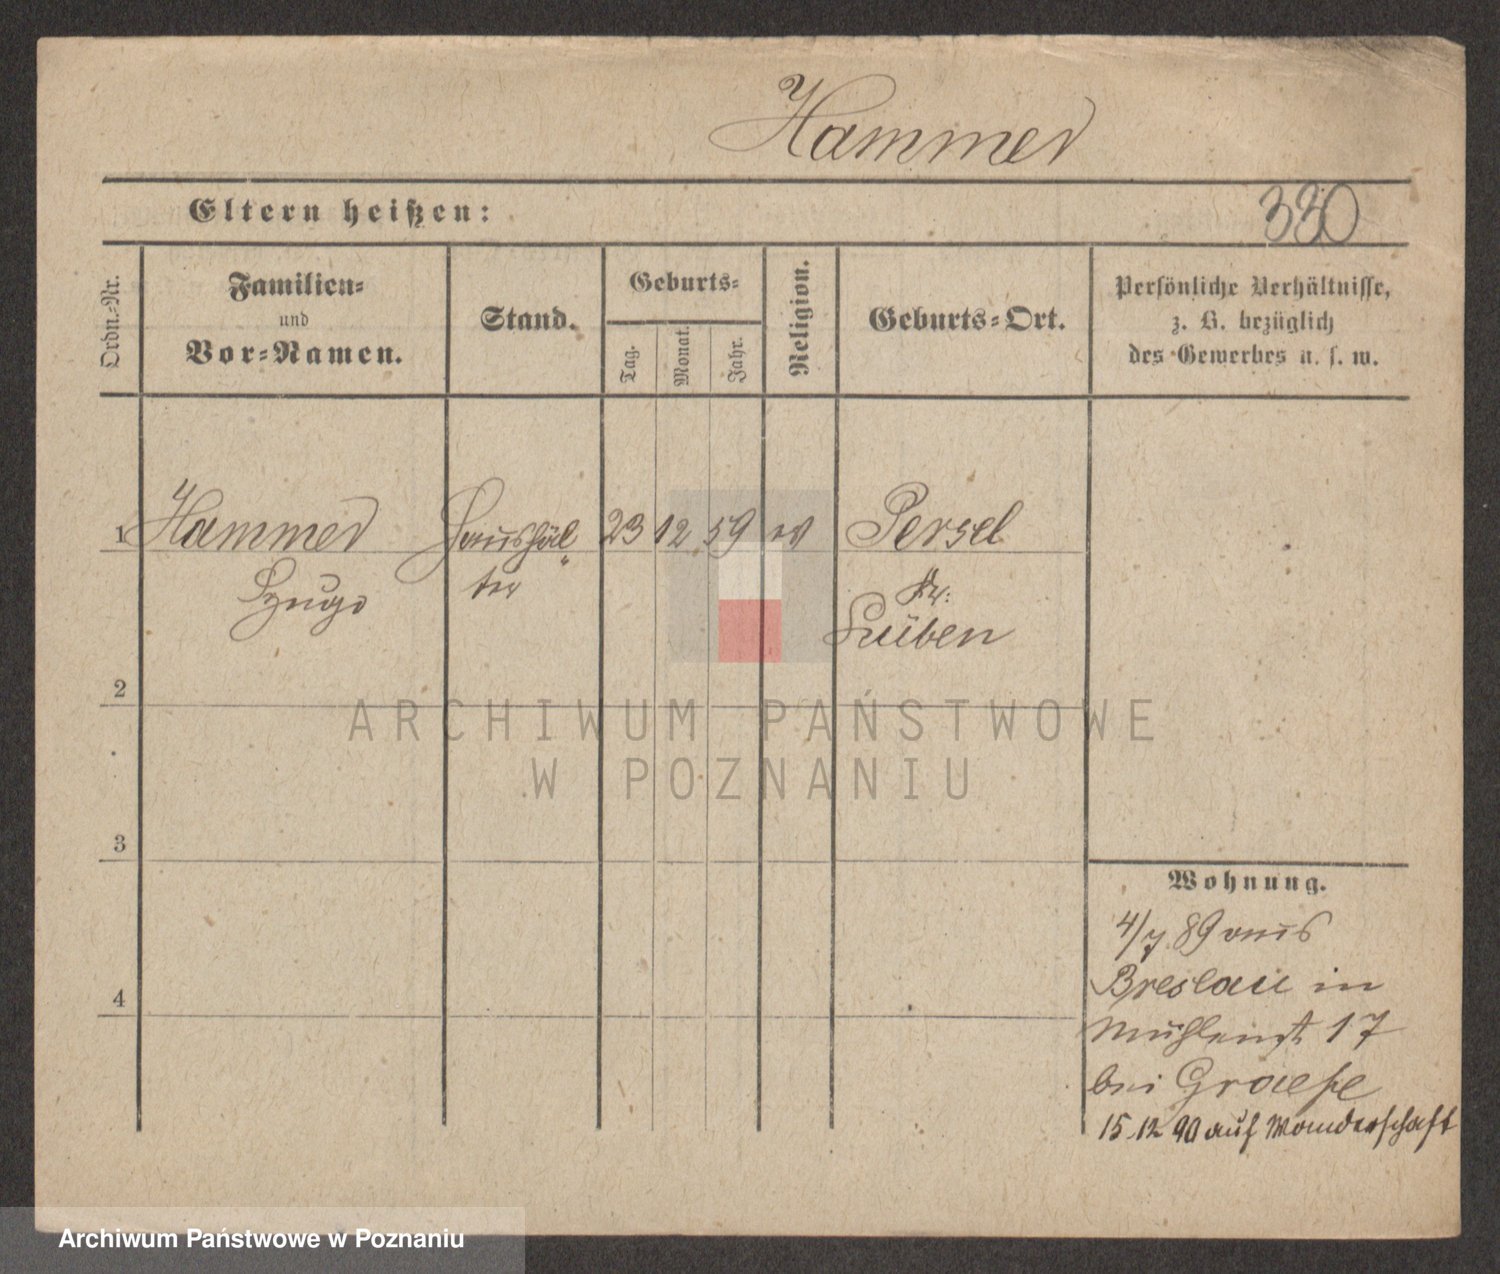 Hammer
Eltern heißen:
330
Ordn.-Nr.
Familien-
und
Vor-Namen.
Stand.
Geburts-
Tag.
Monat.
Jahr.
Religion.
Geburts-Ort.
Persönliche Verhältnisse,
z. B. bezüglich
des Gewerbes u. s. w.
1 Hammer Haushäl 23 12 59 ev Persel
Hugo ter Kr:
Lüben
2
3
4
Wohnung.
4/7 89 aus
Breslau in
Mühlenst 17
bei Graefe
15.12 90 auf Wanderschaft
ARCHIWUM PAŃSTWOWE
W POZNANIU
Archiwum Państwowe w Poznaniu